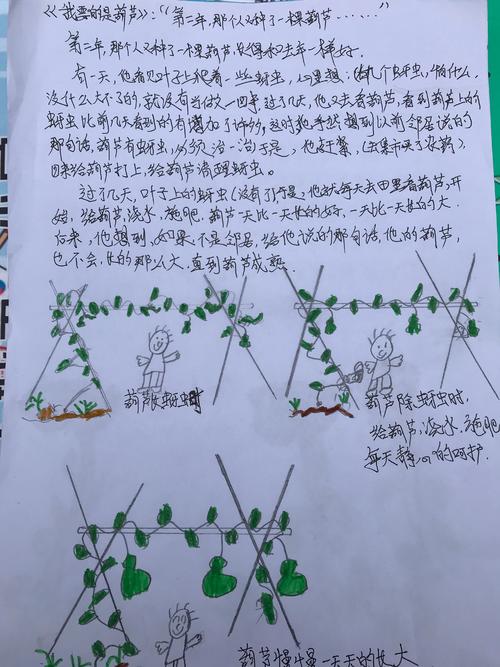 《我要的是葫芦》:“第二年,那个人又种了一棵葫芦……”
第二年,那个人又种了一棵葫芦,长得和去年一样好。
有一天,他看见叶子上爬着一些蚜虫,心里想:几个蚜虫,怕什么,
没什么大不了的,就没有当做一回事。过了几天,他又去看葫芦,看到葫芦上的
蚜虫比前几天看到的有增加了许多,这时他突然想到以前邻居说的
那句话,葫芦有蚜虫,必须治一治,于是,他赶紧(去集市买了农药)
回来给葫芦打上,给葫芦清理蚜虫。
过了几天,叶子上的蚜虫(没有了)于是,他就每天去田里看葫芦,开
始,给葫芦,浇水,施肥,葫芦一天比一天长的好,一天比一天长的大。
后来,他想到,如果,不是邻居,给他说的那句话,他的葫芦,
也不会,长的那么大,直到葫芦成熟.
葫芦长蚜虫时
葫芦除蚜虫时,
给葫芦,浇水,施肥
每天静心的呵护.
葫芦慢慢一天天的长大